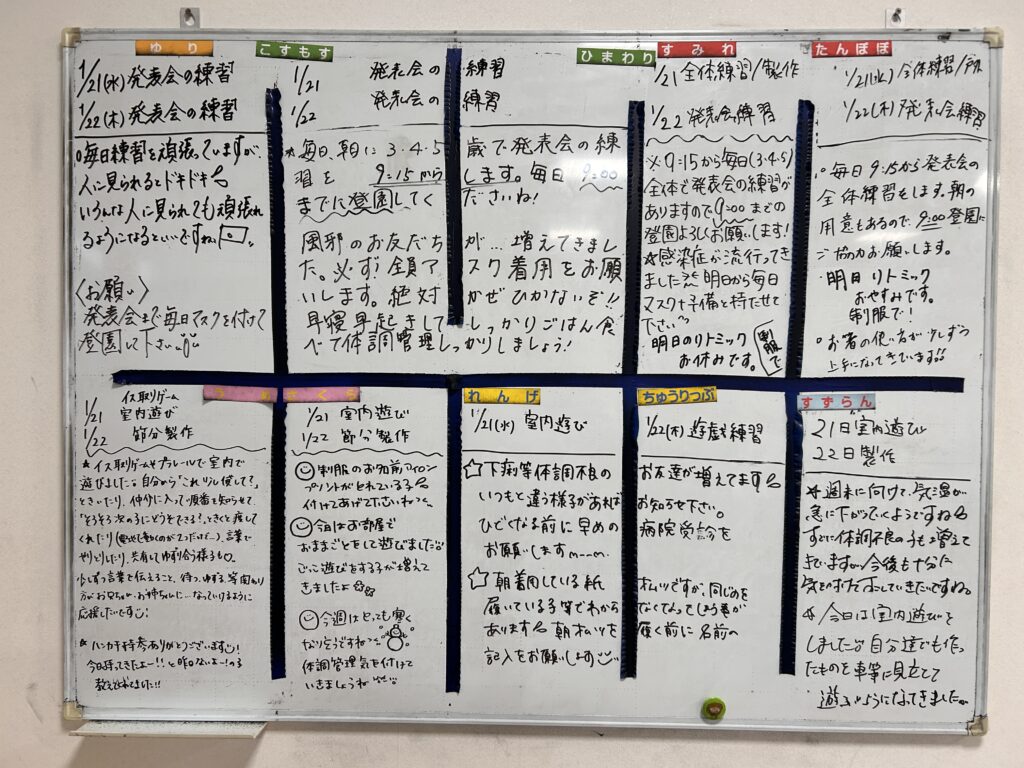 ゆり
1/21(水)発表会の練習
1/22(木)発表会の練習
○毎日練習を頑張っていますが、
人に見られるとドキドキ
いろんな人に見られても頑張れ
るようになるといいですね。
〈お願い〉
発表会まで毎日マスクを付けて
登園して下さい
こすもす ひまわり
1/21 発表会の練習
1/22 発表会の練習
*毎日、朝に3・4・5歳で発表会の練
習を 9:15からします。毎日 9:00
までに登園してくださいね!
風邪のお友だちが…増えてきまし
た。必ず!全員マスク着用をお願
いします。絶対かぜひかないぞ!!
早寝早起きしてしっかりごはん食
べて体調管理しっかりしましょう!
すみれ
1/21 全体練習/製作
1/22 発表会練習
※9:15から毎日(3・4・5)
全体で発表会の練習が
ありますので9:00までの
登園よろしくお願いします!
★感染症が流行ってき
ました 明日から毎日
マスク+予備と持たせて
下さい
明日のリトミック
お休みです。
制服で
たんぽぽ
1/21(水) 全体練習/
1/22(木) 発表会練習
○毎日9:15から発表会の
全体練習をします。朝の
用意もあるので、9:00登園に
ご協力お願いします。
・明日リトミック
おやすみです。
制服で!
○お箸の使い方が少しずつ
上手になってきています!!
イス取りゲーム
1/21 室内遊び
1/22 節分製作
★イス取りゲームやプラレールで室内で
遊びました 自分から「これかして?」
ときいたり、仲介に入って順番を知らせて
「そろそろ次の子にどうぞできる?」と
くれたり 言葉で
やりとりしたり、共有してゆずり合う様子も。
少しずつ言葉を伝えること、待つ、ゆずる、等関わり
方がお兄ちゃん・お姉ちゃんに…なっていけるように
応援したいです
★ハンカチ持参ありがとうございます
今日持ってきたよー!!と
教えてくれました!!
さくら
1/21 室内遊び
1/22 節分製作
制服のお名前アイロン
プリントがとれている子
付けてあげて下さいね
今日はお部屋で
おままごとをして遊びました
ごっこ遊びをする子が増えて
きましたよ
今週はとっても寒く
なりそうですね
体調管理気を付けて
いきましょうね
れんげ ちゅうりっぷ
1/21(水) 室内遊び
1/22(木) 遊戯練習
☆下痢等体調不良のお友達が増えてます
いつもと違う様子があればお知らせ下さい。
ひどくなる前に早めの病院受診を
お願いしますm__m
☆朝着用している紙オムツですが、同じめを
履いている子等でわからなくなってしまう事が
あります 朝オムツを履く前に名前の
記入をお願いします
すずらん
21日 室内遊び
22日 製作
★週末に向けて、気温が
急に下がっていくようですね
すでに体調不良の子も増えて
きていますが今後も十分に
気を付けていきたいですね
★今日は室内遊びを
しました 自分達でも作っ
たものを車等に見立てて
遊ぶようになってきました